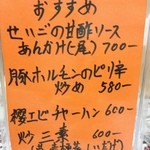 おすすめ
せいごの甘酢ソース
あんかけ(尾) 700ー
豚ホルモンのピリ辛
炒め 580ー
櫻エビチャーハン 600ー
炒三素 600ー